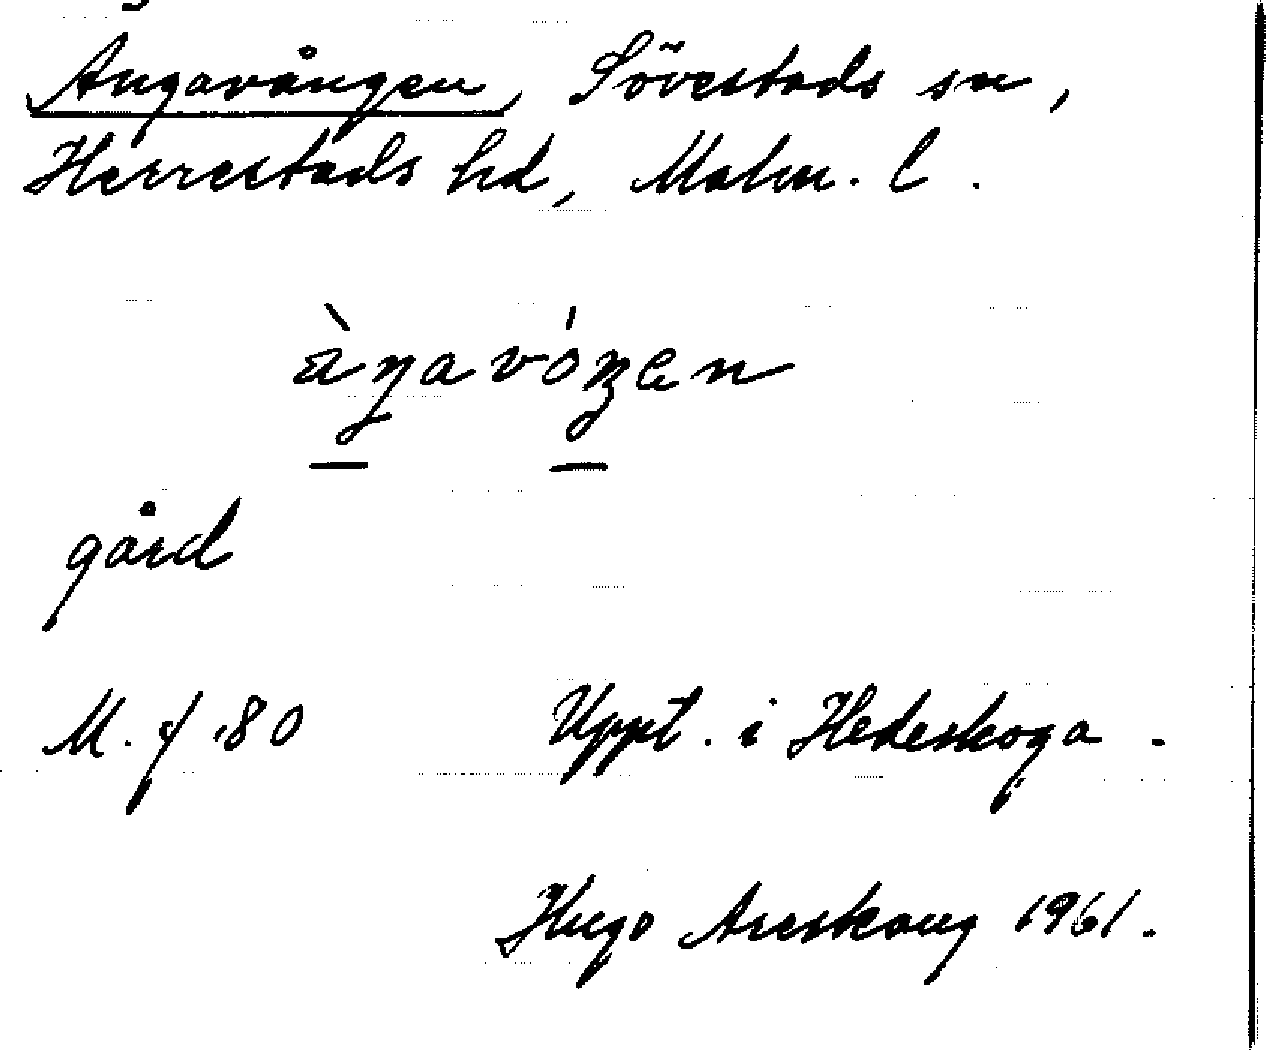 Angavången, Sövestads sn,
Herrestads hd, Malm. l.
àŋavóŋen
gård
M. f. 80 Uppt. i Hedeskoga.
Hugo Areskoug 1961.